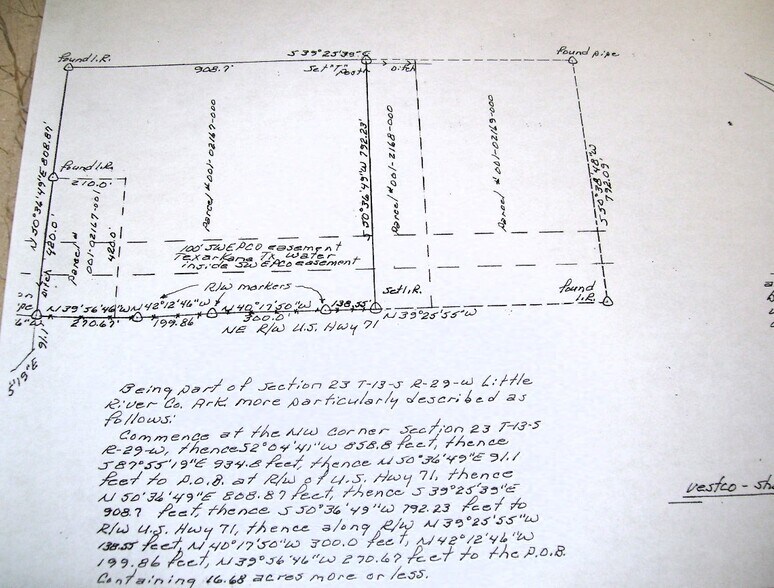 Found I.R.
S 39°25'39"E
Found pipe
908.7'
Set "T" Post
Ditch
N 50°36'49"E 808.87'
Parcel #001-02167-000
S 50°36'49"W 792.23'
Parcel #001-2168-000
Parcel #001-02169-000
S 50°38'48"W
792.09'
Found I.R.
210.0'
Ditch 420.0'
Parcel #
001-02167-001
420.0'
100' SWEPCO easement
Texarkana Tx. Water
inside SWEPCO easement
R/W markers
Set I.R.
Found
I.R.
N 39°56'46"W
N 42°12'46"W
N 40°17'50"W
138.55'
N 39°25'55"W
6"W
270.67'
199.86'
300.0'
NE R/W U.S. Hwy 71
91.1'
5'19"E
Being part of Section 23 T-13-S R-29-W Little
River Co. Ark. more particularly described as
follows:
Commence at the NW corner Section 23 T-13-S
R-29-W, thence S2°04'41"W 858.8 feet, thence
S87°55'19"E 934.8 feet, thence N 50°36'49"E 91.1
feet to P.O.B. at R/W of U.S. Hwy 71, thence
N 50°36'49"E 808.87 feet, thence S 39°25'39"E
908.7 feet, thence S 50°36'49"W 792.23 feet to
R/W U.S. Hwy 71, thence along R/W N 39°25'55"W
138.55 feet, N 40°17'50"W 300.0 feet, N 42°12'46"W
199.86 feet, N 39°56'46"W 270.67 feet to the P.O.B.
Containing 16.68 acres more or less.
vestco - sh